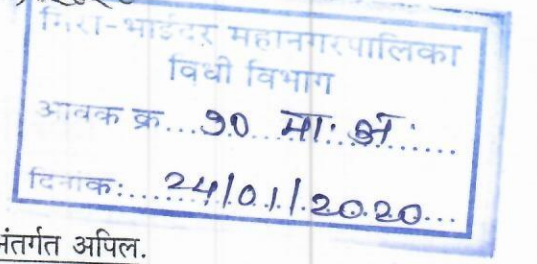 मिरा-भाईंदर महानगरपालिका
विधी विभाग
आवक क्र...१०...मा: अ:......
दिनांक:......24/01/2020...
अंतर्गत अपिल.